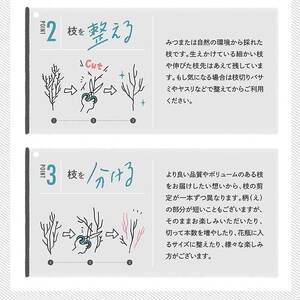 POINT
2 枝を整える
Cut
みつまたは自然の環境から採れた
枝です。生えかけている細かい枝
や伸びた枝先はあえて残していま
す。もし気になる場合は枝切りバサ
ミやヤスリなどで整えてからご利用
ください。
POINT
3 枝を分ける
より良い品質やボリュームのある枝
をお届けしたい想いから、枝の剪
定が一本ずつ異なります。柄(え)
の部分が短いこともございますが、
そのままお楽しみいただいたり、
切って本数を増やしたり、花瓶に入
るサイズに整えたり、様々な楽しみ
方がございます。